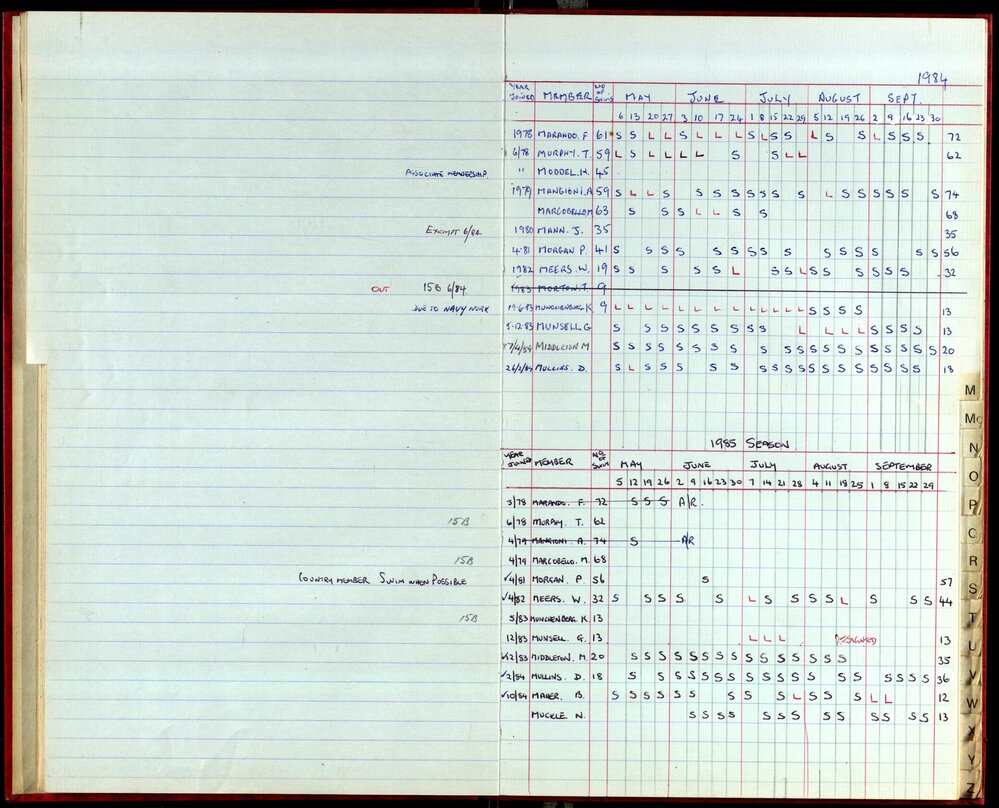 1984
YEAR JOINED MEMBER NO OF SWIMS MAY JUNE JULY AUGUST SEPT.
6 13 20 27 3 10 17 24 1 8 15 22 29 5 12 19 26 2 9 16 23 30
1978 MARANDO. F. 61 S S L L S L L L S L S S L S S L S S S 72
6/78 MURPHY. T. 59 L S L L L L S S L L 62
ASSOCIATE MEMBERSHIP " MODDEL. H. 45
1979 MANGIONI. A 59 S L L S S S S S S S S S L S S S S S S S 74
MARCOBELLO M 63 S S S L L S S 68
EXEMPT 6/82 1980 MANN. J. 35 35
4.81 MORGAN P. 41 S S S S S S S S S S S S S S S S 56
1982 MEERS. W. 19 S S S S S L S S L S S S S S S 32
OUT 15B 6/84 1983 MORTON. T. 9
DUE TO NAVY WORK 19.6.83 MUNCHENBERG K. 9 L L L L L L L L L L L L L S S S S 13
5.12.83 MUNSELL G S S S S S S S S S L L L L S S S S 13
7/4/84 MIDDLETON M S S S S S S S S S S S S S S S S S S S S S 20
26/2/84 MULLINS. D. S L S S S S S S S S S S S S S S S S S 18
1985 SEASON
YEAR JOINED MEMBER NO. OF SWIMS MAY JUNE JULY AUGUST SEPTEMBER
5 12 19 26 2 9 16 23 30 7 14 21 28 4 11 18 25 1 8 15 22 29
5/78 MARANDO. F. 72 S S S A/R.
15B 6/78 MURPHY. T. 62
4/79 MANGIONI. A. 74 S A/R
15B 4/79 MARCOBELLO. M. 68
COUNTRY MEMBER SWIM WHEN POSSIBLE ✓4/81 MORGAN. P 56 S 57
✓4/82 MEERS. W. 32 S S S S S L S S S S L S S S 44
15B 5/83 MUNCHENBERG. K. 13
12/83 MUNSELL. G. 13 L L L RESIGNED 13
✓12/83 MIDDLETON. M. 20 S S S S S S S S S S S S S S S 35
✓2/84 MULLINS. D. 18 S S S S S S S S S S S S S S S S S S 36
✓10/84 MAHER. B. S S S S S S S S S L S S S L L 12
MUCKLE. N. S S S S S S S S S S S S S 13
M
Mc
N
O
P
Q
R
S
T
U
V
W
X
Y
Z